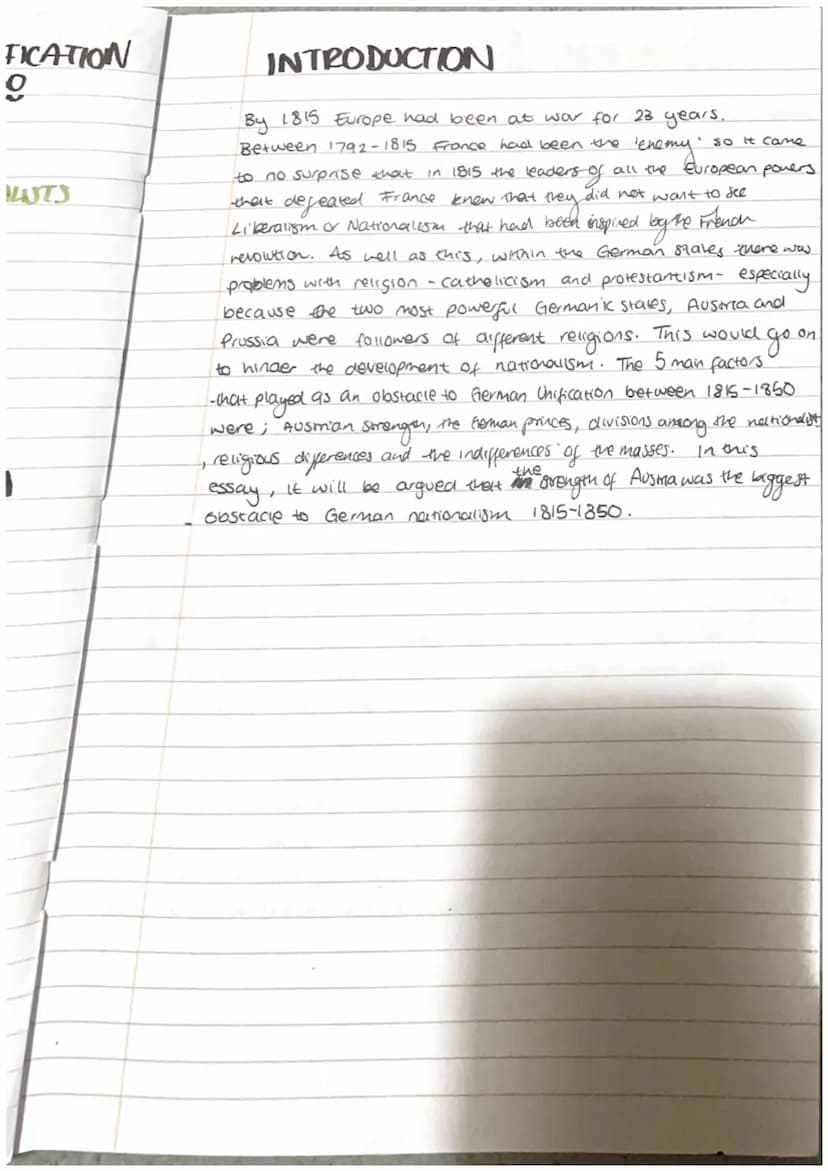 FICATION
0
ALISTS
INTRODUCTION
By 1815 Europe had been at war for 23 years.
Between 1792-1815 France had been the 'enemy' so it came
to no surprise that in 1815 the leaders of all the European powers
that defeated France knew that they did not want to see
Liberalism or Nationalism that had been inspired by the French
revolution. As well as this, within the German states there was
problems with religion - catholicism and protestantism - especially
because the two most powerful Germanic states, Austria and
Prussia were followers of different religions. This would go on
to hinder the development of nationalism. The 5 main factors
that played as an obstacle to German Unification between 1815-1850
were; Austrian strength, the German princes, divisions among the nationalist
, religious differences and the indifferences of the masses. In this
essay, it will be argued that the strength of Austria was the biggest
obstacle to German nationalism 1815-1850.